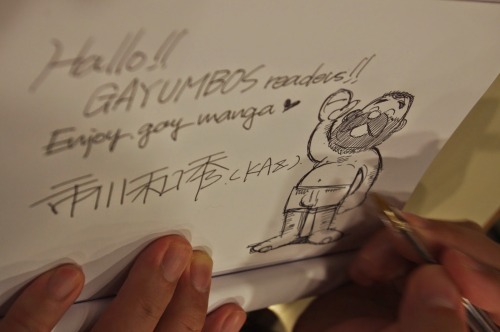 Hallo!!
GAYUMBOS readers!!
Enjoy gay manga ♥
市川和秀.(KAZ)